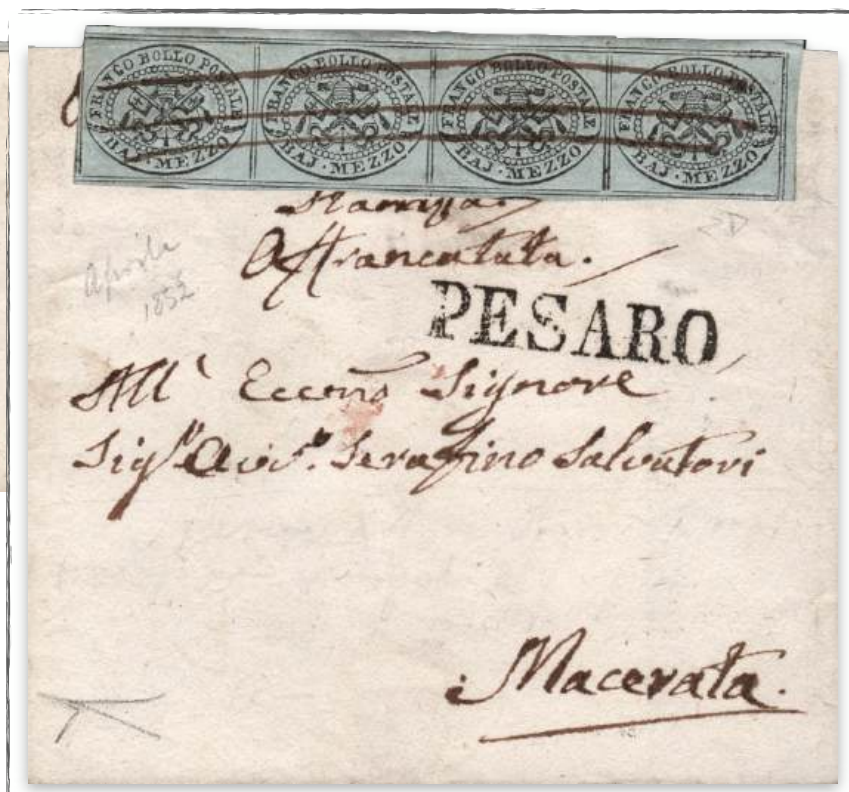 FRANCO BOLLO POSTALE BAJ·MEZZO
FRANCO BOLLO POSTALE BAJ·MEZZO
FRANCO BOLLO POSTALE BAJ·MEZZO
FRANCO BOLLO POSTALE BAJ·MEZZO
Stampa
Affrancatata.
Aprile
1852
PESARO
All' Eccmo Signore
Sigr Avvo. Serafino Salvatori
Macerata.